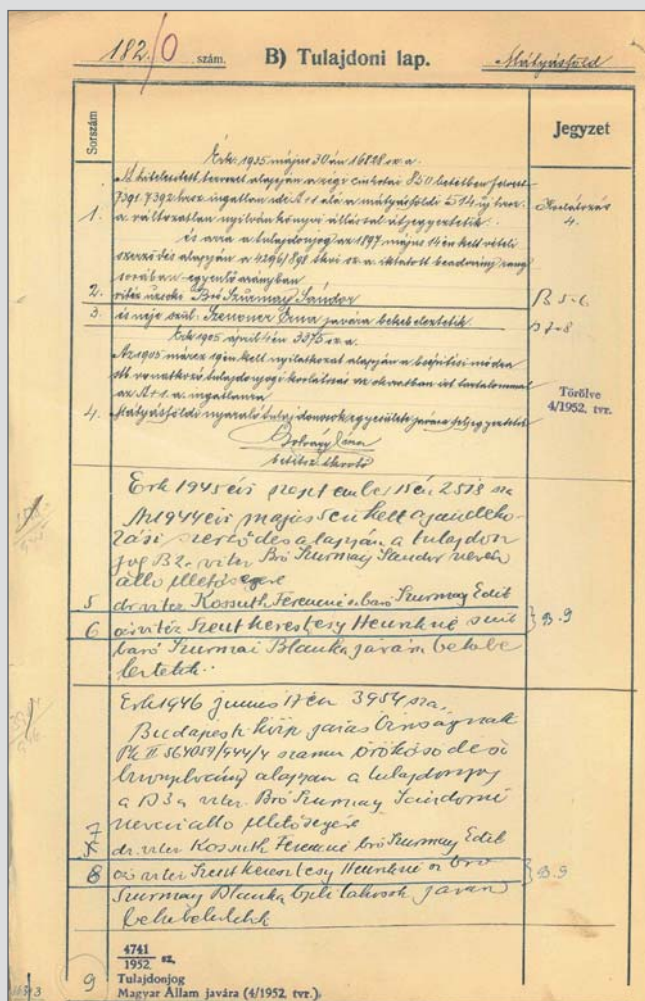 182/0 szám. B) Tulajdoni lap. Mátyásföld
Sorszám
Jegyzet
Érk. 1935 május 30 án 16828 sz. a.
A hitelesített tervezet alapján a régi cinkotai 850 betétben felvett
7391. 7392 hrsz ingatlan ide A + 1 alá a mátyásföldi 514 új hrsz.
1. a változatlan nyilvánkönyvi állással átjegyeztetik.
Korlátozás
4.
és arra a tulajdonjog az 1897 május 14 én kelt vételi
szerződés alapján a 4296/898 tkvi sz. a. iktatott beadvány rang
sorában egyenlő arányban
2. vitéz uzsoki Bró Szurmay Sándor
B 5-6
3. és neje szül: Erna javára bekebeleztetik.
B 7-8
Érk 1905 április én 3375 sz. a.
Az 1905 márcz. 19 én kelt nyilatkozat alapján a beépítési módra
stb vonatkozó tulajdonjogi korlátozás az okiratban írt tartalommal
az A + 1. a. ingatlanra
4. Mátyásföldi nyaraló tulajdonosok egyesülete javára feljegyeztetik
Törölve
4/1952. tvr.
betétsz.
Érk 1945 évi szeptember 15 én 2578 sz a
Az 1944 évi május 5 én kelt ajándéko-
zási szerződés alapján a tulajdon
jog B 2. vitéz Bró Szurmay Sándor nevén
álló illetőségére
5 dr. vitéz Kossuth Ferencné sz. báró Szurmay Edit
6 és vitéz Szentkeresztesy Henrikné szül
B. 9
báró Szurmai Blanka javára bekebe
leztetik.
Érk 1946 június 17 én 3954 sz a.
Budapesti közp járás bíróságnak
Pk II 564059/944/4 számú örökösödési
bizonyítvány alapján a tulajdonjog
a B 3 a vitéz Bró Szurmay Sándorné
nevén álló illetőségére
7 dr. vitéz Kossuth Ferencné bró Szurmay Edit
8 és vitéz Szentkeresztesy Henrikné sz bró
B. 9
Szurmay Blanka bpesti lakosok javára
bekebeleztetik
4741
1952 sz.
9 Tulajdonjog
Magyar Állam javára (4/1952. tvr.).